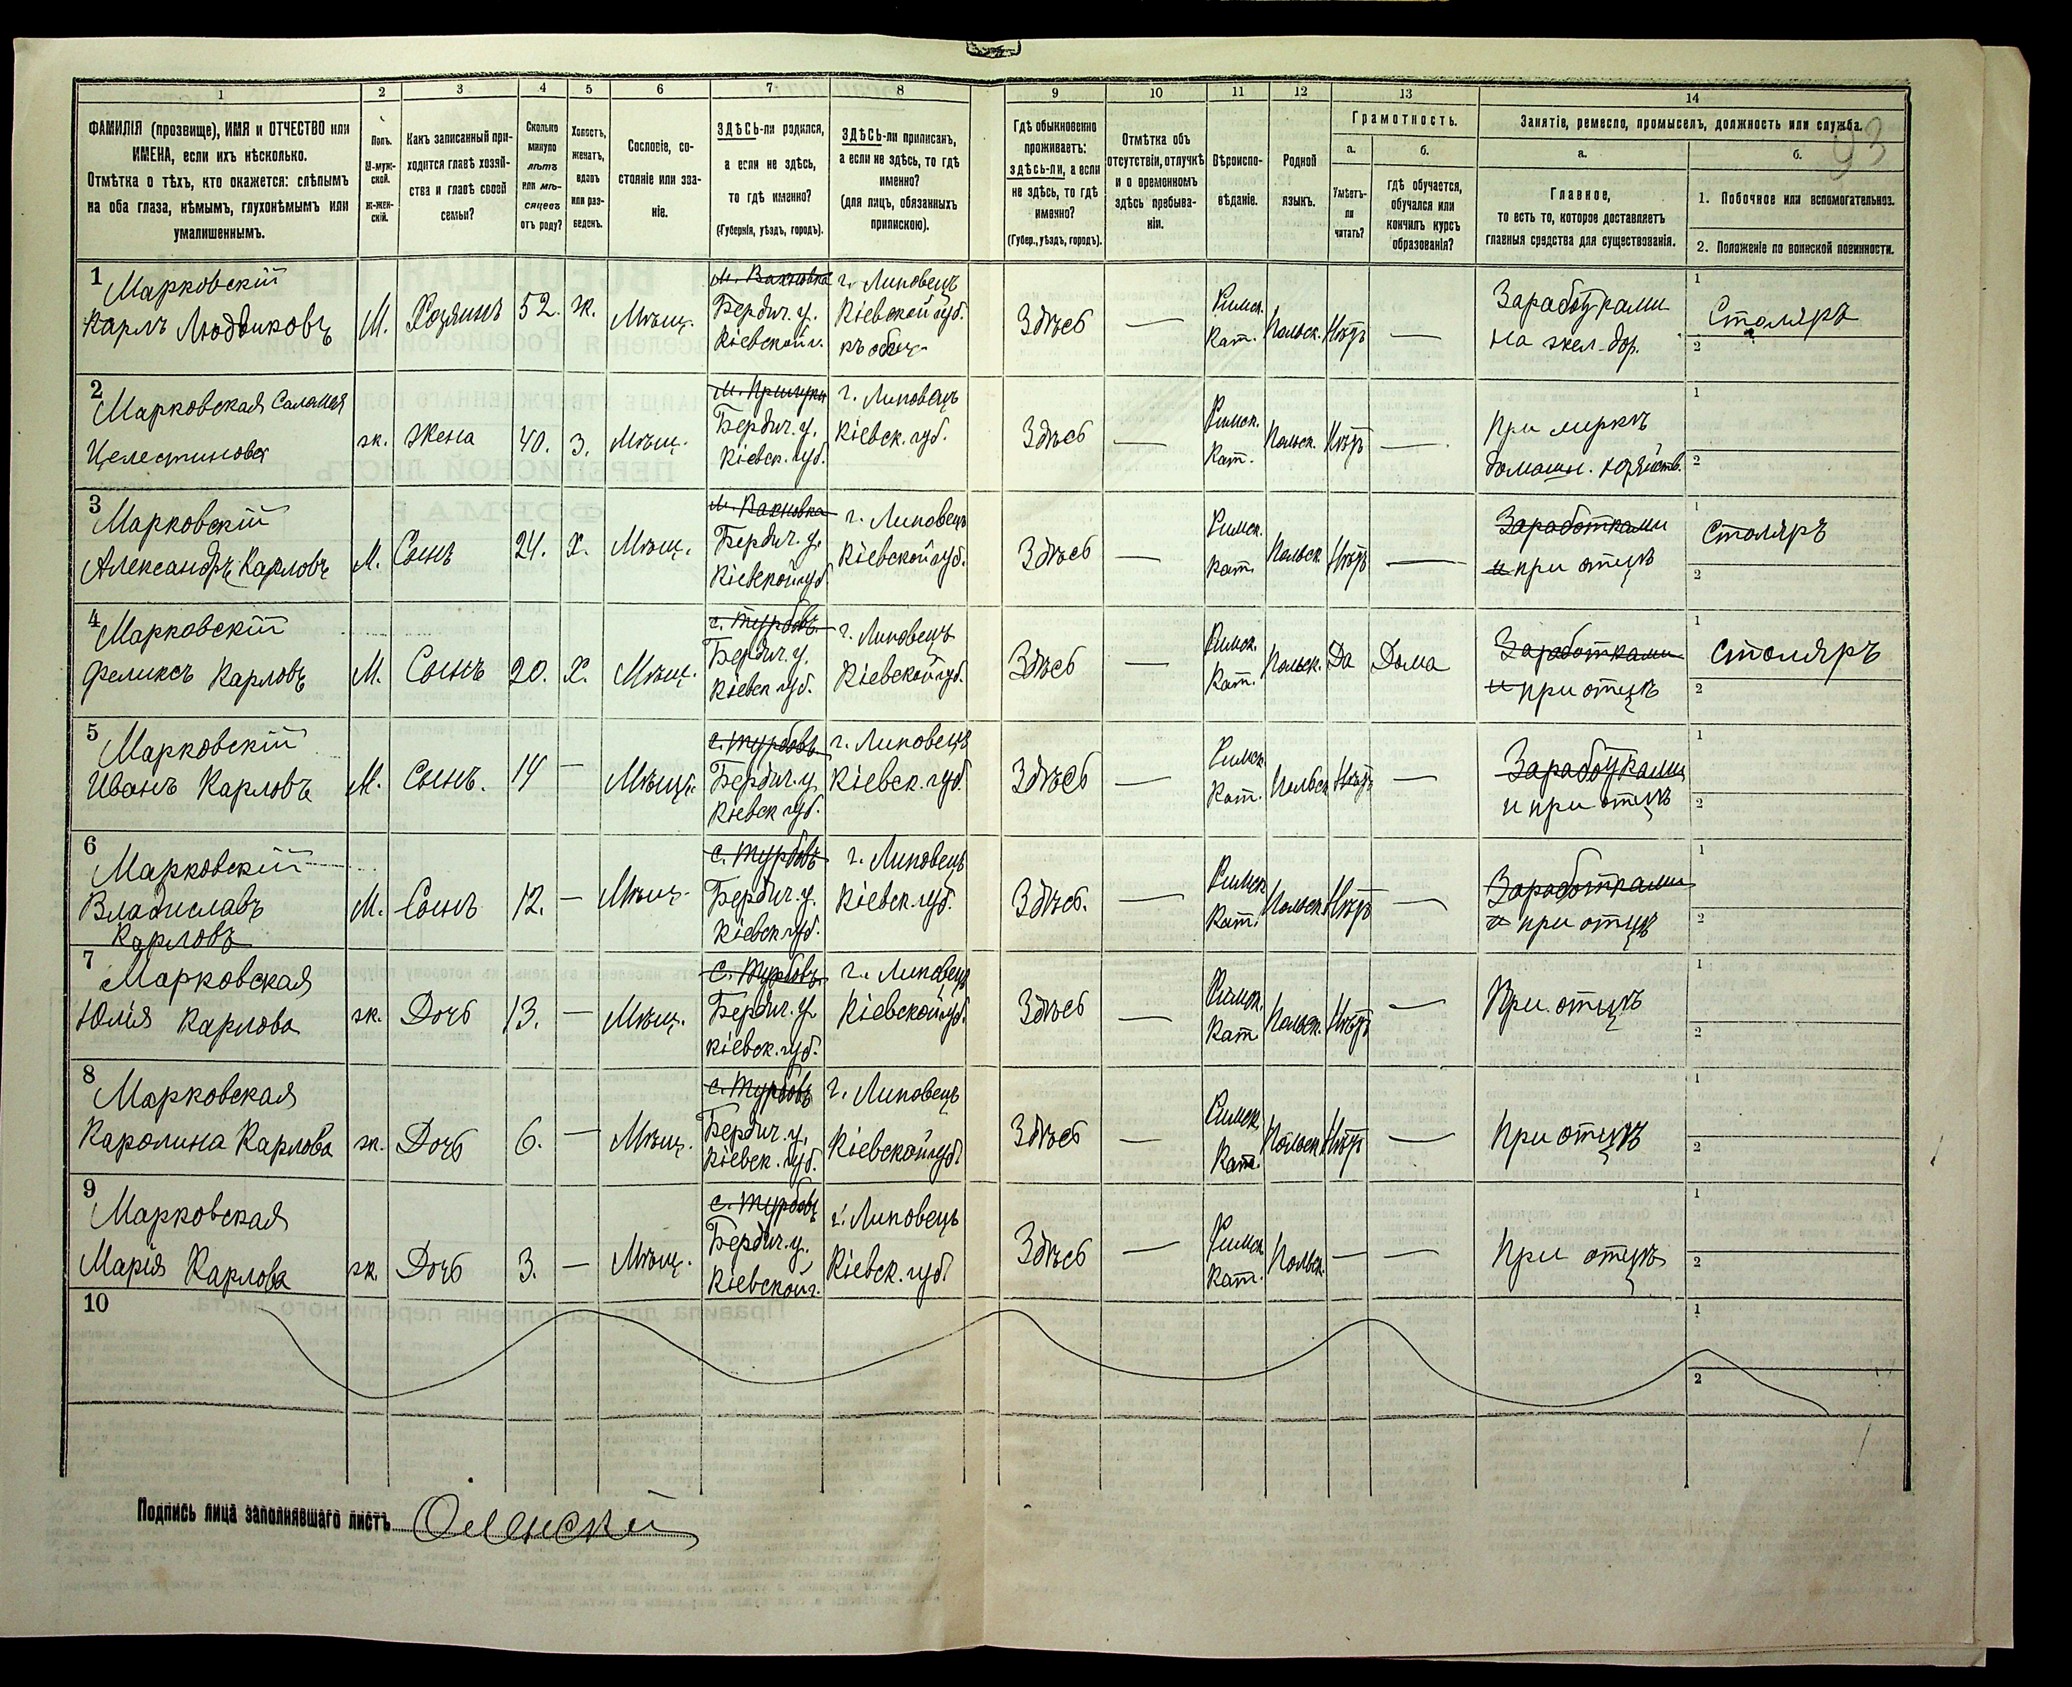 1 2 3 4 5 6 7 8 9 10 11 12 13 14
ФАМИЛІЯ (прозвище), ИМЯ и ОТЧЕСТВО или
ИМЕНА, если ихъ нѣсколько.
Отмѣтка о тѣхъ, кто окажется: слѣпымъ
на оба глаза, нѣмымъ, глухонѣмымъ или
умалишеннымъ.
Полъ.
М-муж-
ской.
Ж-жен-
скій.
Какъ записанный при-
ходится главѣ хозяй-
ства и главѣ своей
семьи?
Сколько
минуло
лѣтъ
или мѣ-
сяцевъ
отъ роду?
Холостъ,
женатъ,
вдовъ
или раз-
веденъ.
Сословіе, со-
стояніе или зва-
ніе.
ЗДѢСЬ-ли родился,
а если не здѣсь,
то гдѣ именно?
(Губернія, уѣздъ, городъ).
ЗДѢСЬ-ли приписанъ,
а если не здѣсь, то гдѣ
именно?
(для лицъ, обязанныхъ
припискою).
Гдѣ обыкновенно
проживаетъ:
здѣсь-ли, а если
не здѣсь, то гдѣ
именно?
(Губер., уѣздъ, городъ).
Отмѣтка объ
отсутствіи, отлучкѣ
и о временномъ
здѣсь пребыва-
ніи.
Вѣроиспо-
вѣданіе.
Родной
языкъ.
Грамотность.
а.
Умѣетъ-
ли
читать?
б.
гдѣ обучается,
обучался или
кончилъ курсъ
образованія?
Занятіе, ремесло, промыселъ, должность или служба.
93
а.
Главное,
то есть то, которое доставляетъ
главныя средства для существованія.
б.
1. Побочное или вспомогательноз.
2. Положеніе по воинской повинности.
1
Марковскій
Карлъ Людвиковъ
М.
Хозяинъ
52.
ж.
Мѣщ.
м. Вахновка
Бердич. у.
Кіевской г.
г. Липовецъ
Кіевской губ.
Здѣсь
—
Римск.
Кат.
Польск.
Нѣтъ
—
Заработками
на жел. дор.
1
Столяръ
2
2
Марковская Саломея
Целестинова
ж.
Жена
40.
з.
Мѣщ.
Бердич. у.
Кіевск. губ.
г. Липовецъ
Кіевск. губ.
Здѣсь
—
Римск.
Кат.
Польск.
Нѣтъ
—
При
домашн. хозяйств.
1
2
3
Марковскій
Александръ Карловъ
М.
Сынъ
24.
Х.
Мѣщ.
м. Вахновка
Бердич. у.
Кіевской губ
г. Липовецъ
Кіевской губ.
Здѣсь
—
Римск.
Кат.
Польск.
Нѣтъ
—
Заработками
и при отцѣ
1
Столяръ
2
4
Марковскій
Феликсъ Карловъ
М.
Сынъ
20.
Х.
Мѣщ.
с. Турбовъ
Бердич. у.
Кіевск губ.
г. Липовецъ
Кіевской губ.
Здѣсь
—
Римск.
Кат.
Польск.
Да
Дома
Заработками
и при отцѣ
1
Столяръ
2
5
Марковскій
Иванъ Карловъ
М.
Сынъ.
14
—
Мѣщ.
с. Турбовъ
Бердич. у.
Кіевск губ.
г. Липовецъ
Кіевск. губ.
Здѣсь
—
Римск.
Кат.
Польск
Нѣтъ
—
Заработками
и при отцѣ
1
2
6
Марковскій
Владиславъ
Карловъ
М.
Сынъ
12.
—
Мѣщ.
с. Турбовъ
Бердич. у.
Кіевск губ.
г. Липовецъ
Кіевск. губ.
Здѣсь.
—
Римск
Кат.
Польск
Нѣтъ
—
Заработками
и при отцѣ
1
2
7
Марковская
Юлія Карлова
ж.
Дочь
13.
—
Мѣщ.
с. Турбовъ
Бердич. у.
Кіевск. губ.
г. Липовецъ
Кіевской губ.
Здѣсь
—
Римск.
Кат
Польск.
Нѣтъ
—
При отцѣ
1
2
8
Марковская
Каролина Карлова
ж.
Дочь
6.
—
Мѣщ.
с. Турбовъ
Бердич. у.
Кіевск. губ.
г. Липовецъ
Кіевской губ.
Здѣсь
—
Римск.
Кат.
Польск
Нѣтъ
—
При отцѣ
1
2
9
Марковская
Марія Карлова
ж.
Дочь
3.
—
Мѣщ.
с. Турбовъ
Бердич. у.
Кіевской г.
г. Липовецъ
Кіевск. губ
Здѣсь
—
Римск
Кат.
Польск.
—
—
При отцѣ
1
2
10
1
2
Подпись лица заполнявшаго листъ